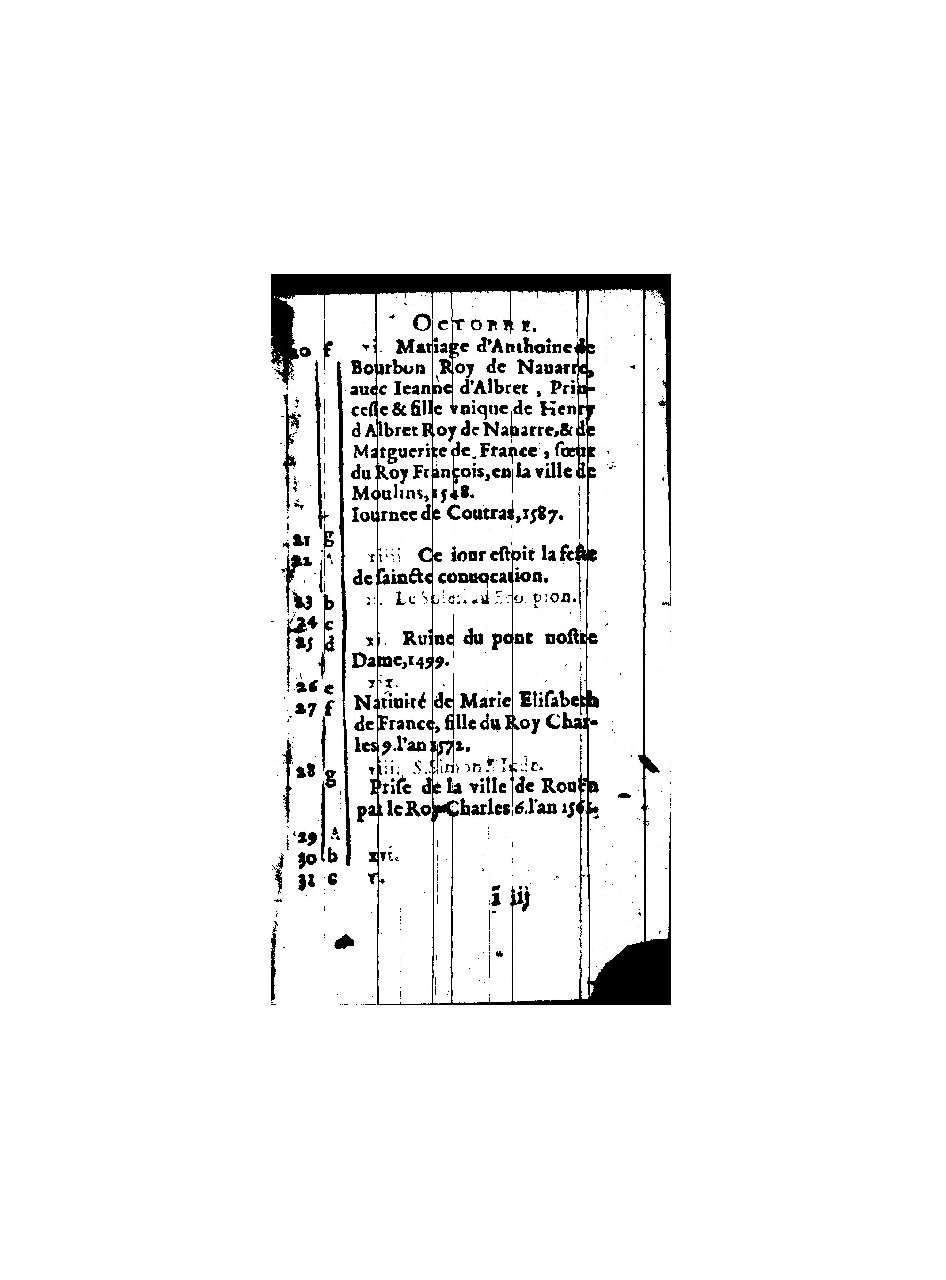 OCTOBRE.
20 f vi. Mariage d'Anthoine de
Bourbon Roy de Nauarre,
auec Ieanne d'Albret, Prin-
ceſſe & fille vnique de Henry
d Albret Roy de Nauarre, & de
Marguerite de France, ſœur
du Roy François, en la ville de
Moulins, 1548.
Iournee de Coutras, 1587.
21 g
22 A xiiii Ce iour eſtoit la feſte
de ſaincte conuocation.
23 b Le Soleil au Scorpion.
24 c
25 d xi. Ruine du pont noſtre
Dame, 1499.
26 e xix.
27 f Natiuité de Marie Eliſabeth
de France, fille du Roy Char-
les 9. l'an 1572.
28 g viii. S. Simon S. Iude.
Priſe de la ville de Rouën
par le Roy Charles 6. l'an
29 A
30 b xvi.
31 c v.
ĩ iij